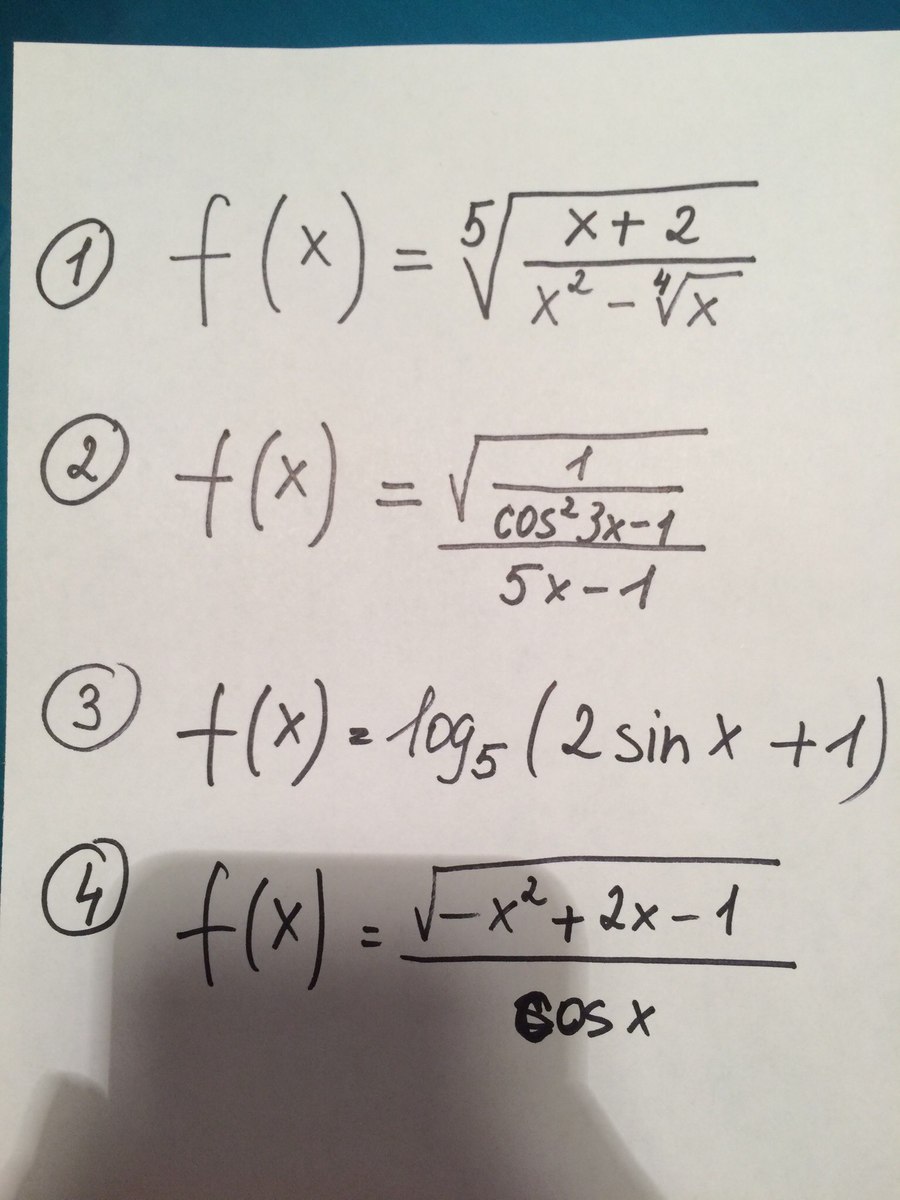 ① f(x) = ⁵√((x + 2)/(x² - ⁴√x))
② f(x) = √(1/(cos² 3x - 1))/(5x - 1)
③ f(x) = log₅(2 sin x + 1)
④ f(x) = √(-x² + 2x - 1)/cos x